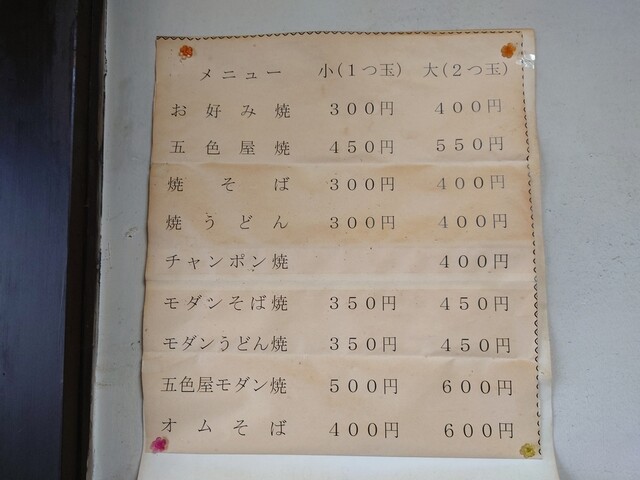 メニュー 小(1つ玉) 大(2つ玉)
お好み焼 300円 400円
五色屋焼 450円 550円
焼そば 300円 400円
焼うどん 300円 400円
チャンポン焼 400円
モダンそば焼 350円 450円
モダンうどん焼 350円 450円
五色屋モダン焼 500円 600円
オムそば 400円 600円